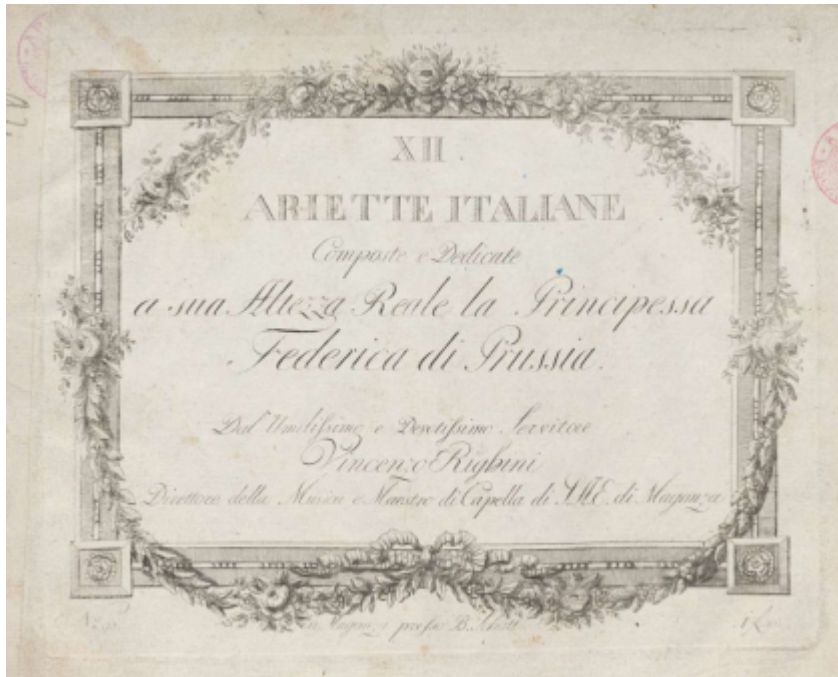 XII.
ARIETTE ITALIANE
Composte e Dedicate
a sua Altezza Reale la Principessa
Federica di Prussia.
Dal Umilissimo e Devotissimo Servitore
Vincenzo Righini
Direttore della Musica e Maestro di Capella di S.A.E. di Maganza
in Maganza presso B. Schott